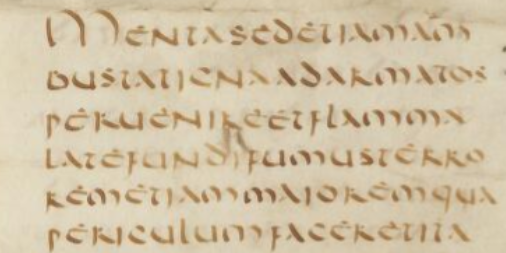 MENTASEDETIAMAM
BUSTATIGNAADARMATOS
PERUENIREETFLAMMA
LATEFUNDIFUMUSTERRO
REMETIAMMAIOREMQUA
PERICULUMFACERETITA